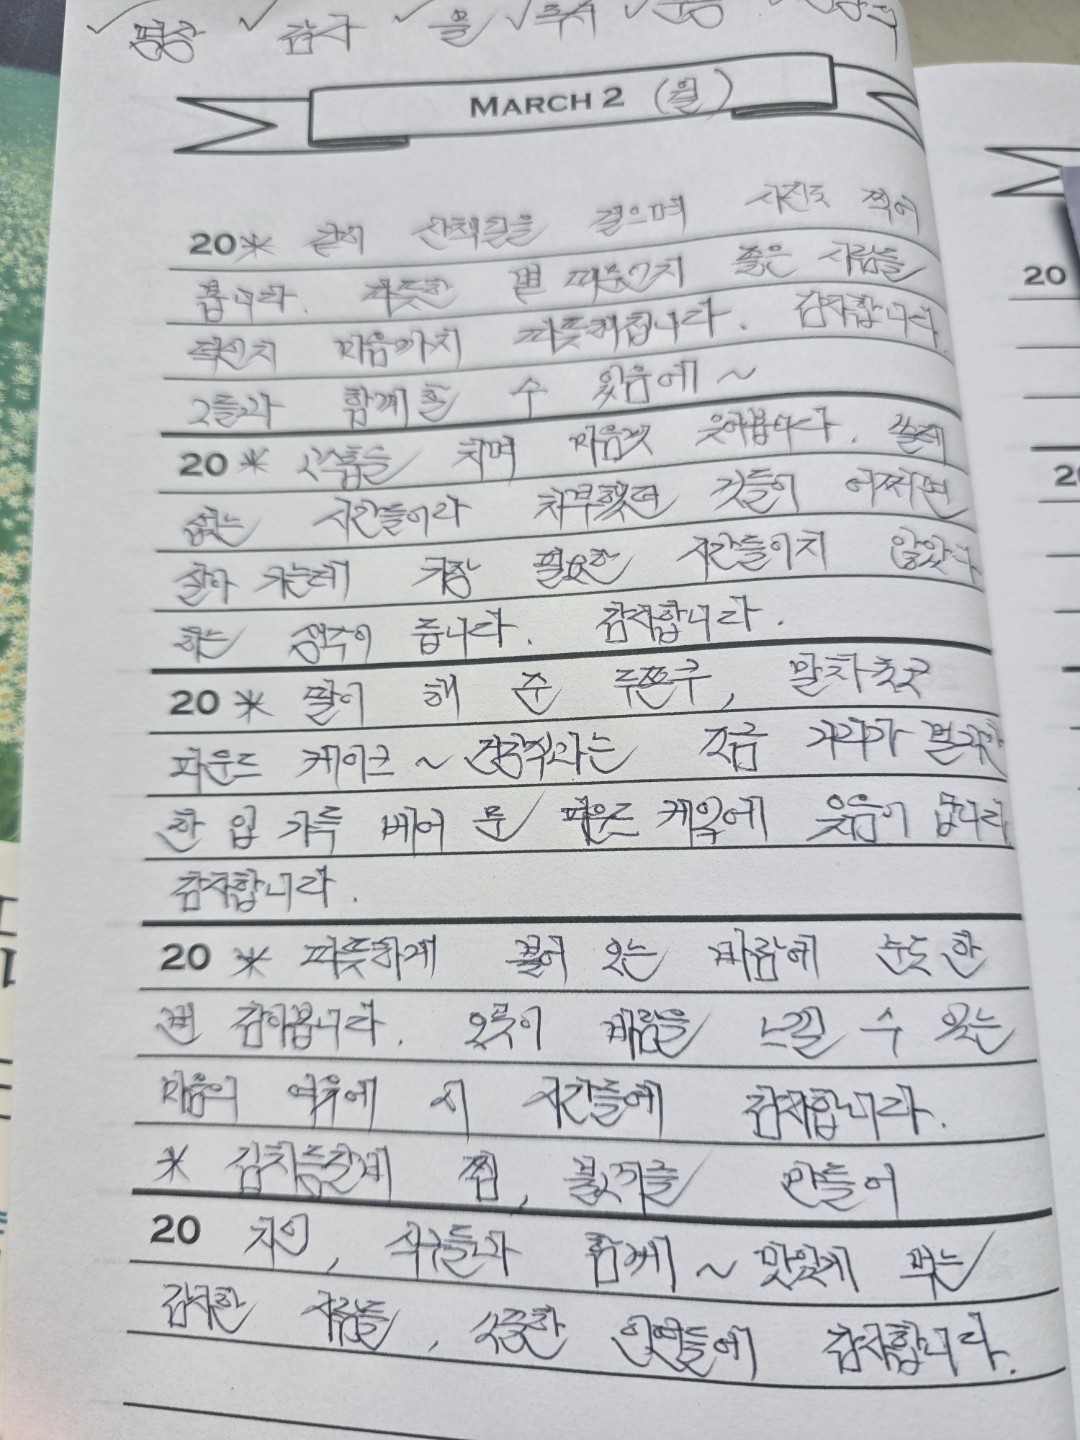 평강 감사
MARCH 2 (월)
20 * 같이 산책길을 걸으며 사진도 찍어
봅니다. 따뜻한 볕 따뜻까지 좋은 사람들
마음까지 따뜻해집니다. 감사합니다.
그들과 함께 할 수 있음에 ~
20 * 고스톱을 치며 마음껏 웃어봅니다. 쓸데
없는 시간들이라 치부했던 것들이 어쩌면
살아 가는데 가장 필요한 시간들이지 않았나
하는 생각이 듭니다. 감사합니다.
20 * 딸이 해 준 두쫀쿠, 말차초코
파운드 케이크 ~ 건강식과는 조금 거리가 멀지만
한 입 가득 베어 문 파운드 케잌에 웃음이 납니다.
감사합니다.
20 * 따뜻하게 불어 오는 바람에 눈도 한
번 감아봅니다. 오롯이 바람을 느낄 수 있는
마음의 여유에 이 시간들에 감사합니다.
* 김치등갈비 찜, 불고기를 만들어
20 지인, 식구들과 함께 ~ 맛있게 먹는
감사한 사람들, 소중한 인연들에 감사합니다.
20